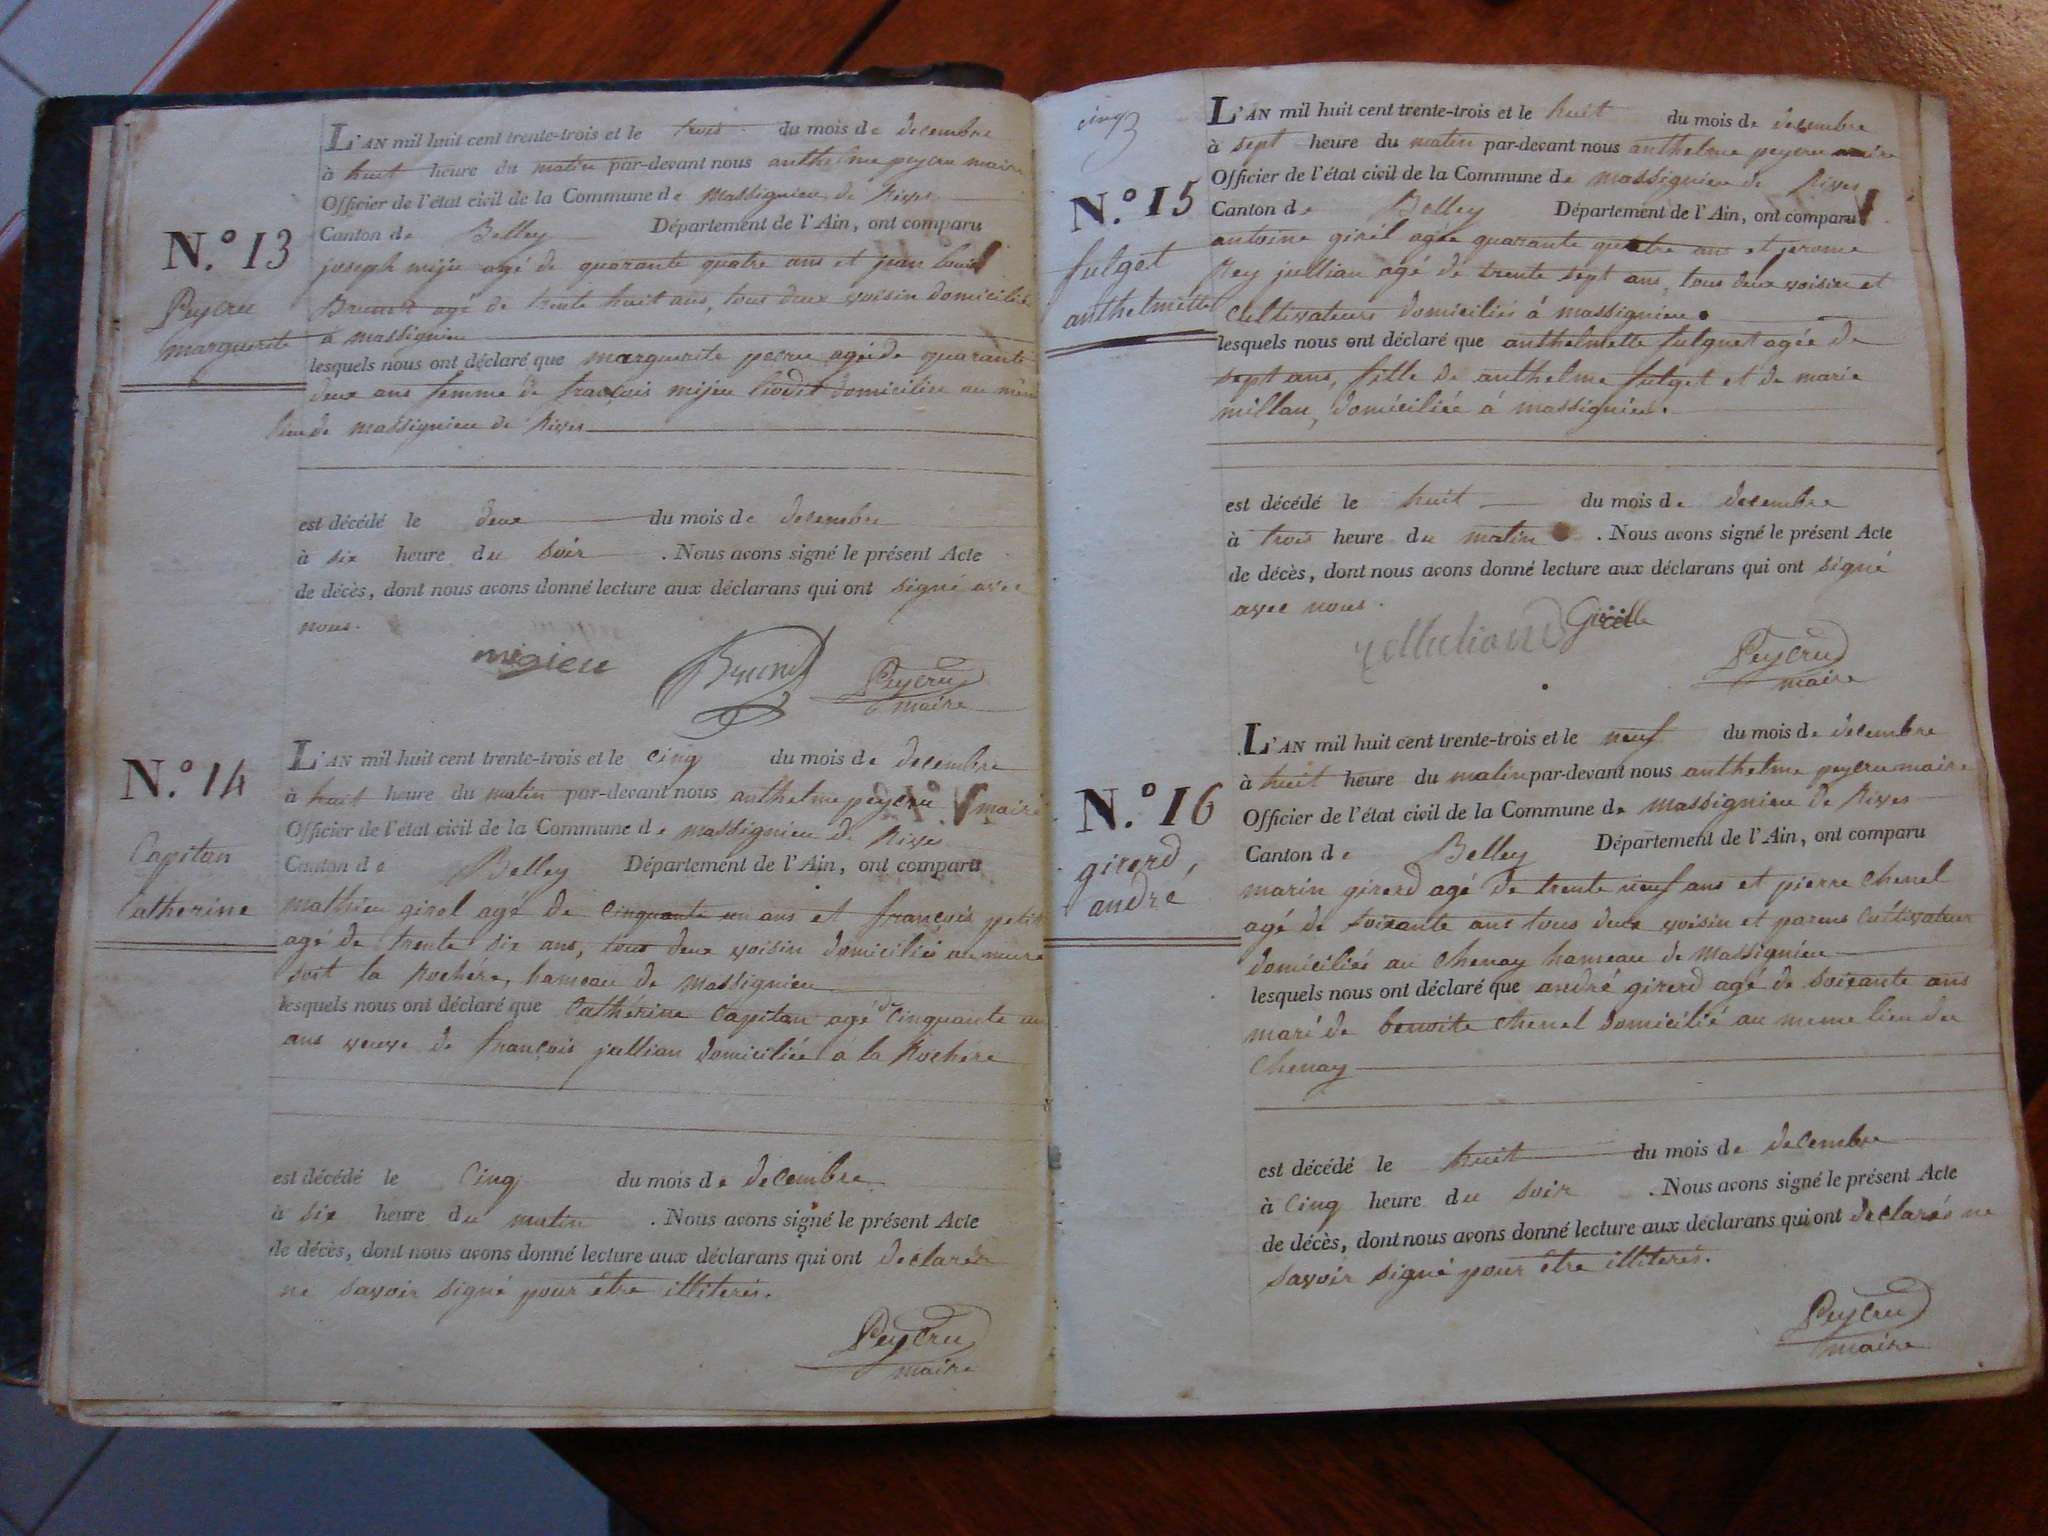 L'AN mil huit cent trente-trois et le trois du mois de decembre
à huit heure du matin par-devant nous anthelme peycru maire
Officier de l'état civil de la Commune de Massignieu de Rives
Canton de Belley Département de l'Ain, ont comparu
N.º 13
joseph mijeu agé de quarante quatre ans et jean louis
Peycru
Brunet agé de trente huit ans, tous deux voisin domiciliés
marguerite
a massignieu
lesquels nous ont déclaré que marguerite pecru agée de quarante
deux ans femme de françois mijeu domiciliée au même
lieu de massignieu de Rives
est décédé le deux du mois de decembre
à six heure du soir . Nous avons signé le présent Acte
de décès, dont nous avons donné lecture aux déclarans qui ont signé avec
nous.
migieu Brunet Peycru
maire
N.º 14
L'AN mil huit cent trente-trois et le cinq du mois de decembre
à huit heure du matin par-devant nous anthelme peycru maire
Officier de l'état civil de la Commune de massignieu de Rives
Capitan
Canton de Belley Département de l'Ain, ont comparu
Catherine
mathieu girel agé de cinquante un ans et françois petit
agé de trente six ans, tous deux voisin domiciliés au mure
soit la Rochére, hameau de Massignieu
lesquels nous ont déclaré que Catherine Capitan agé de Cinquante un
ans veuve de françois jullian domiciliée à la Rochére
est décédé le Cinq du mois de decembre
à six heure du matin . Nous avons signé le présent Acte
de décès, dont nous avons donné lecture aux déclarans qui ont declarés
ne savoir signé pour être illiterés.
Peycru
maire
cinq
L'AN mil huit cent trente-trois et le huit du mois de decembre
à sept heure du matin par-devant nous anthelme peycru maire
Officier de l'état civil de la Commune de massignieu de Rives
N.º 15
Canton de Belley Département de l'Ain, ont comparu
antoine girel agée quarante quatre ans et jerome
fulget
Rey jullian agé de trente sept ans, tous deux voisin et
anthelmette
Cultivateurs domiciliés à massignieu.
lesquels nous ont déclaré que anthelmette fulguet agée de
sept ans, fille de anthelme fulget et de marie
millan, domiciliée à massignieu.
est décédé le huit du mois de decembre
à trois heure du matin . Nous avons signé le présent Acte
de décès, dont nous avons donné lecture aux déclarans qui ont signé
avec nous.
Peycru
maire
L'AN mil huit cent trente-trois et le neuf du mois de décembre
à huit heure du matin par-devant nous anthelme peycru maire
N.º 16
Officier de l'état civil de la Commune de Massignieu de Rives
Canton de Belley Département de l'Ain, ont comparu
girerd,
marin girerd agé de trente neuf ans et pierre Chenel
andré
agé de soixante ans tous deux voisin et parens Cultivateur
domiciliés au Chenay hameau de Massignieu
lesquels nous ont déclaré que andré girerd agé de soixante ans
maré de benoite Chenel domicilié au meme lieu du
Chenay
est décédé le huit du mois de decembre
à Cinq heure du soir . Nous avons signé le présent Acte
de décès, dont nous avons donné lecture aux déclarans qui ont declarés ne
savoir signé pour être illiterés.
Peycru
maire